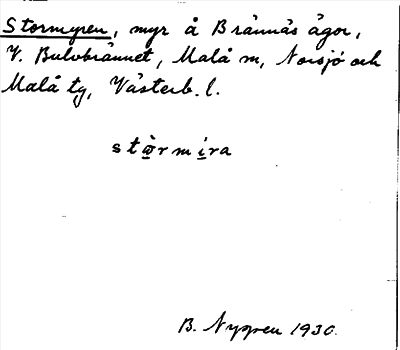 Stormyren, myr å Brännäs ägor,
V. Bulvbrännet, Malå m, Norsjö och
Malå tg, Västerb. l.
stòrmira
B. Nygren 1930.